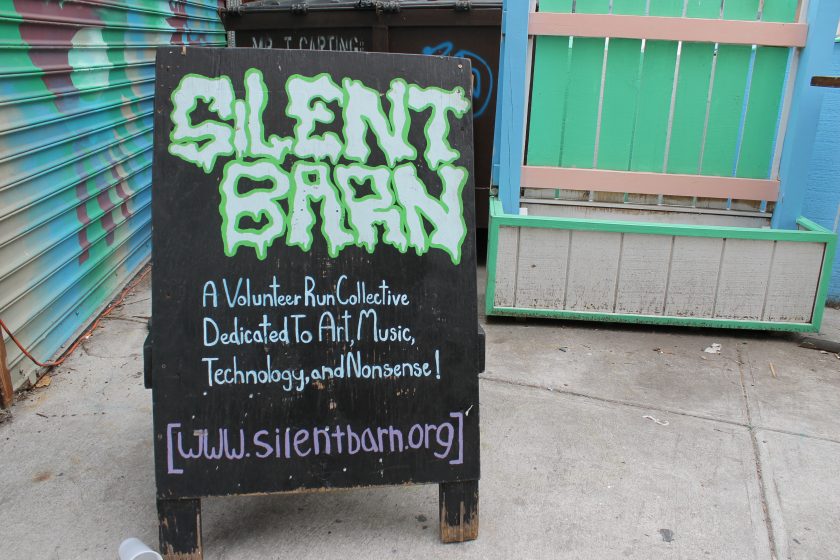 MR. T CARTING
SiLENT
BARN
A Volunteer Run Collective
Dedicated To Art, Music,
Technology, and Nonsense!
[www.silentbarn.org]